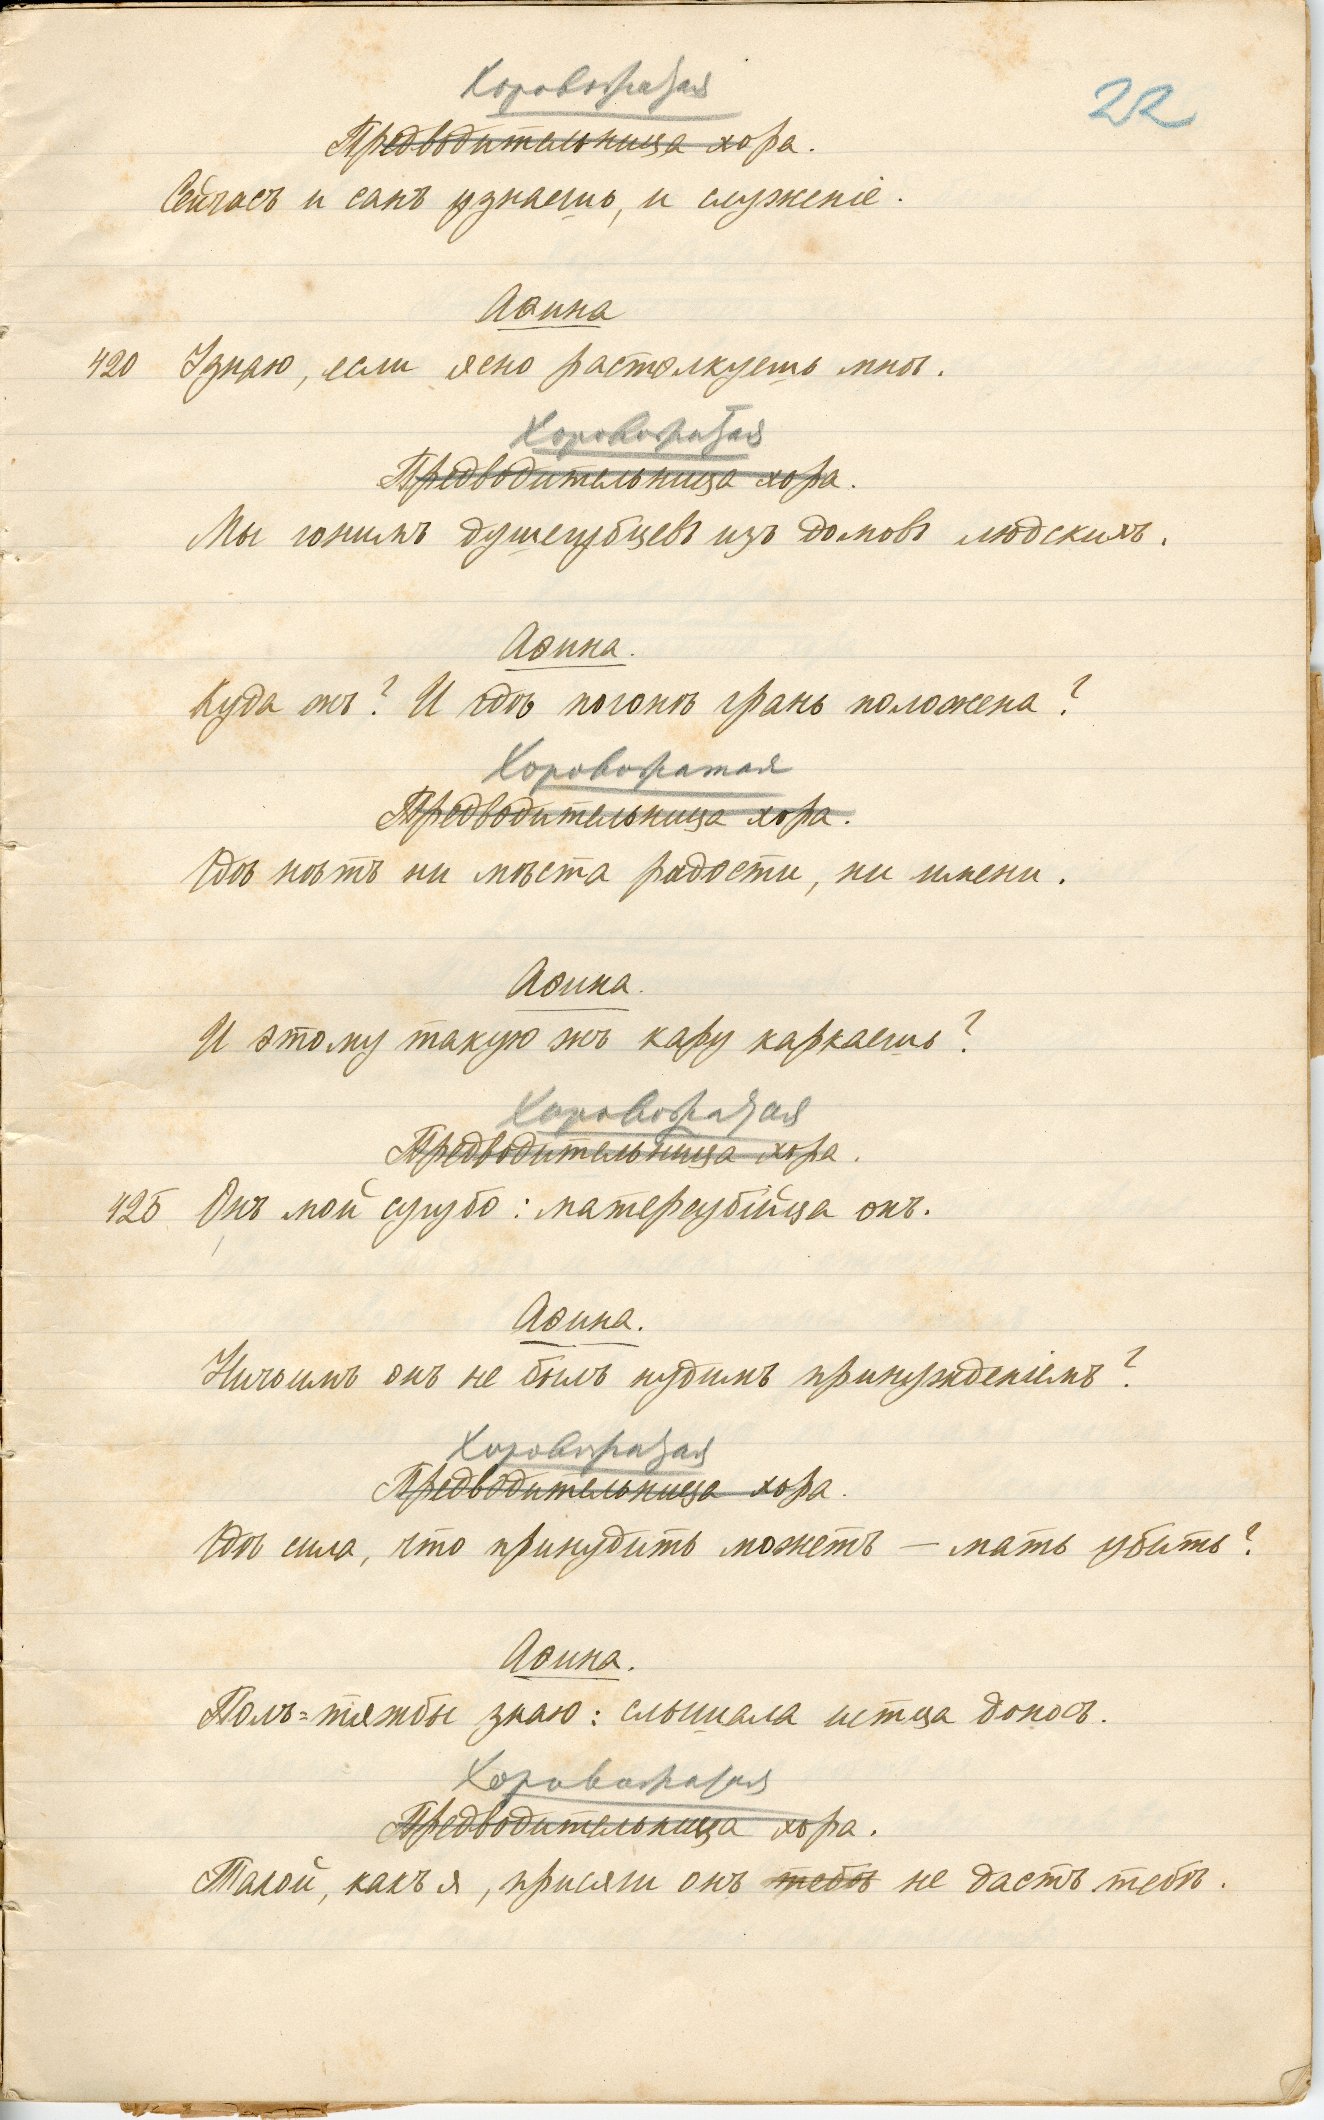 22
Хоровожатая
Предводительница хора.
Сейчасъ и санъ узнаешь, и служеніе.
Аѳина
420 Узнаю, если ясно растолкуешь мнѣ.
Хоровожатая
Предводительница хора.
Мы гонимъ душегубцевъ изъ домовъ людскихъ.
Аѳина.
Куда жъ? И гдѣ погонѣ грань положена?
Хоровожатая
Предводительница хора.
Гдѣ нѣтъ ни мѣста радости, ни имени.
Аѳина.
И этому такую жъ кару каркаешь?
Хоровожатая
Предводительница хора.
425 Онъ мой сугубо: матереубійца онъ.
Аѳина.
Ничѣимъ онъ не былъ нудимъ принужденіемъ?
Хоровожатая
Предводительница хора.
Гдѣ сила, что принудить можетъ – мать убить?
Аѳина.
Полъ=тяжбы знаю: слышала истца доносъ.
Хоровожатая
Предводительница хора.
Такой, какъ я, присяги онъ тебѣ не дастъ тебѣ.